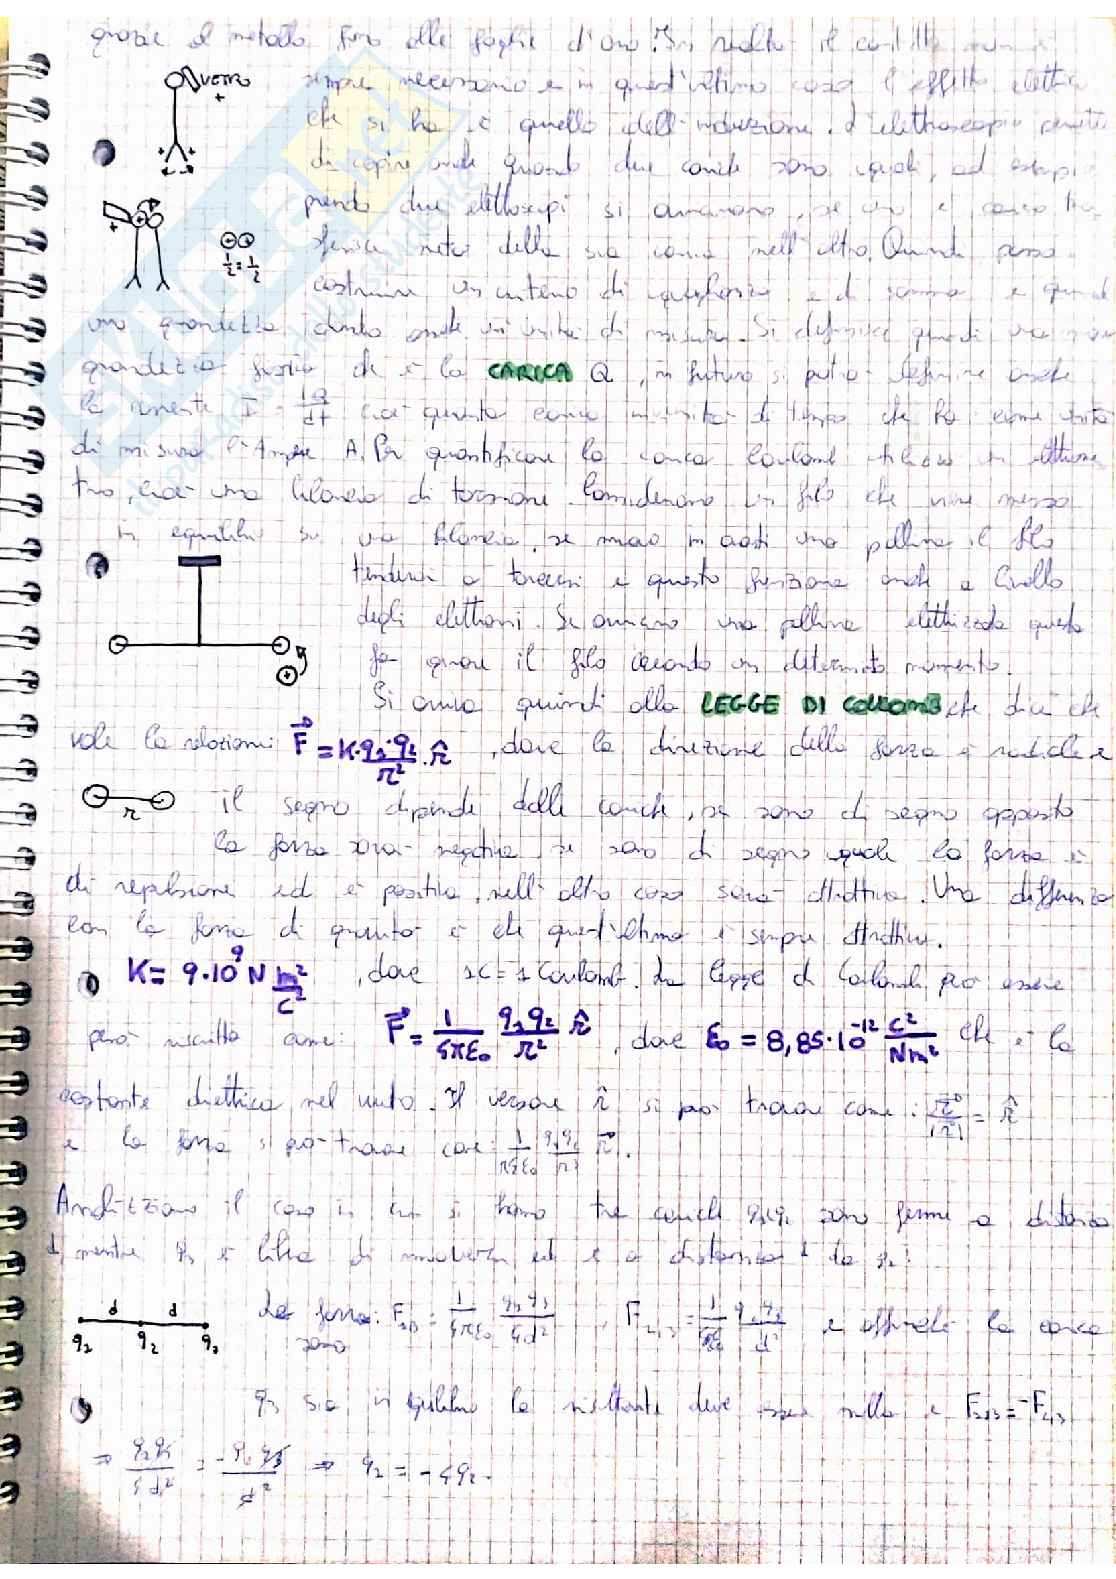 grazie al metallo fino alle foglie d'oro. In realtà il contatto non è
VETRO +
sempre necessario e in quest'ultimo caso l'effetto elettrico
che si ha è quello dell'induzione. L'elettroscopio permette
di capire anche quando due cariche sono uguali, ad esempio
prendo due elettroscopi si avvicinano, se uno è carico tra-
sferisce metà della sua carica nell'altro. Quindi posso
1/2 = 1/2
costruire un criterio di uguaglianza e di somma e quindi
una grandezza dando anche un'unità di misura. Si definisce quindi una nuova
grandezza fisica che è la CARICA Q, in futuro si potrà definire anche
la corrente I = dQ/dt cioè quanta carica in unità di tempo che ha come unità
di misura l'Ampere A. Per quantificare la carica Coulomb utilizzò un
tro, cioè una bilancia di torsione. Consideriamo un filo che viene messo
in equilibrio su una bilancia, se metto ai lati una pallina il filo
tenderà a torcersi e questo funziona anche a livello
degli elettroni. Se avvicino una pallina elettrizzata questa
fa girare il filo creando un determinato momento.
Si arriva quindi alla LEGGE DI COULOMB che dice che
vale la relazione: F = K·q1·q2/r² · r̂ , dove la direzione della forza è radiale e
r
il segno dipende dalle cariche, se sono di segno opposto
la forza sarà negativa, se sono di segno uguale la forza è
di repulsione ed è positiva, nell'altro caso sarà attrattiva. Una differenza
con la forza di gravità è che quest'ultima è sempre attrattiva.
K = 9·10⁹ N m²/C² , dove 1C = 1 Coulomb. La legge di Coulomb può essere
però riscritta come: F = 1/4πε₀ q1q2/r² r̂ , dove ε₀ = 8,85·10⁻¹² C²/Nm² che è la
costante dielettrica nel vuoto. Il versore r̂ si può trovare come: r⃗/|r⃗| = r̂
e la forza si può trovare come: 1/4πε₀ q1q2/r³ r⃗.
Analizziamo il caso in cui si hanno tre cariche q1q2 sono ferme a distanza
d, mentre q3 è libera di muoversi ed è a distanza d da q2:
d d
q1 q2 q3
Le forze sono: F1,3 = 1/4πε₀ q1q3/4d² , F2,3 = 1/4πε₀ q2q3/d² e affinché la carica
q3 sia in equilibrio la risultante deve essere nulla e F1,3 = -F2,3
⇒ q1q3/4d² = -q2q3/d² ⇒ q1 = -4q2.